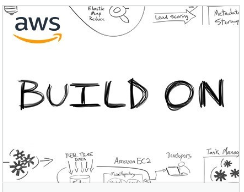 Elastic
Map
Reduce
Lead scoring
Metadata
Storage
aws
BUILD ON
REAL TIME
DATA
Amazon EC2
Developers
Task Manag